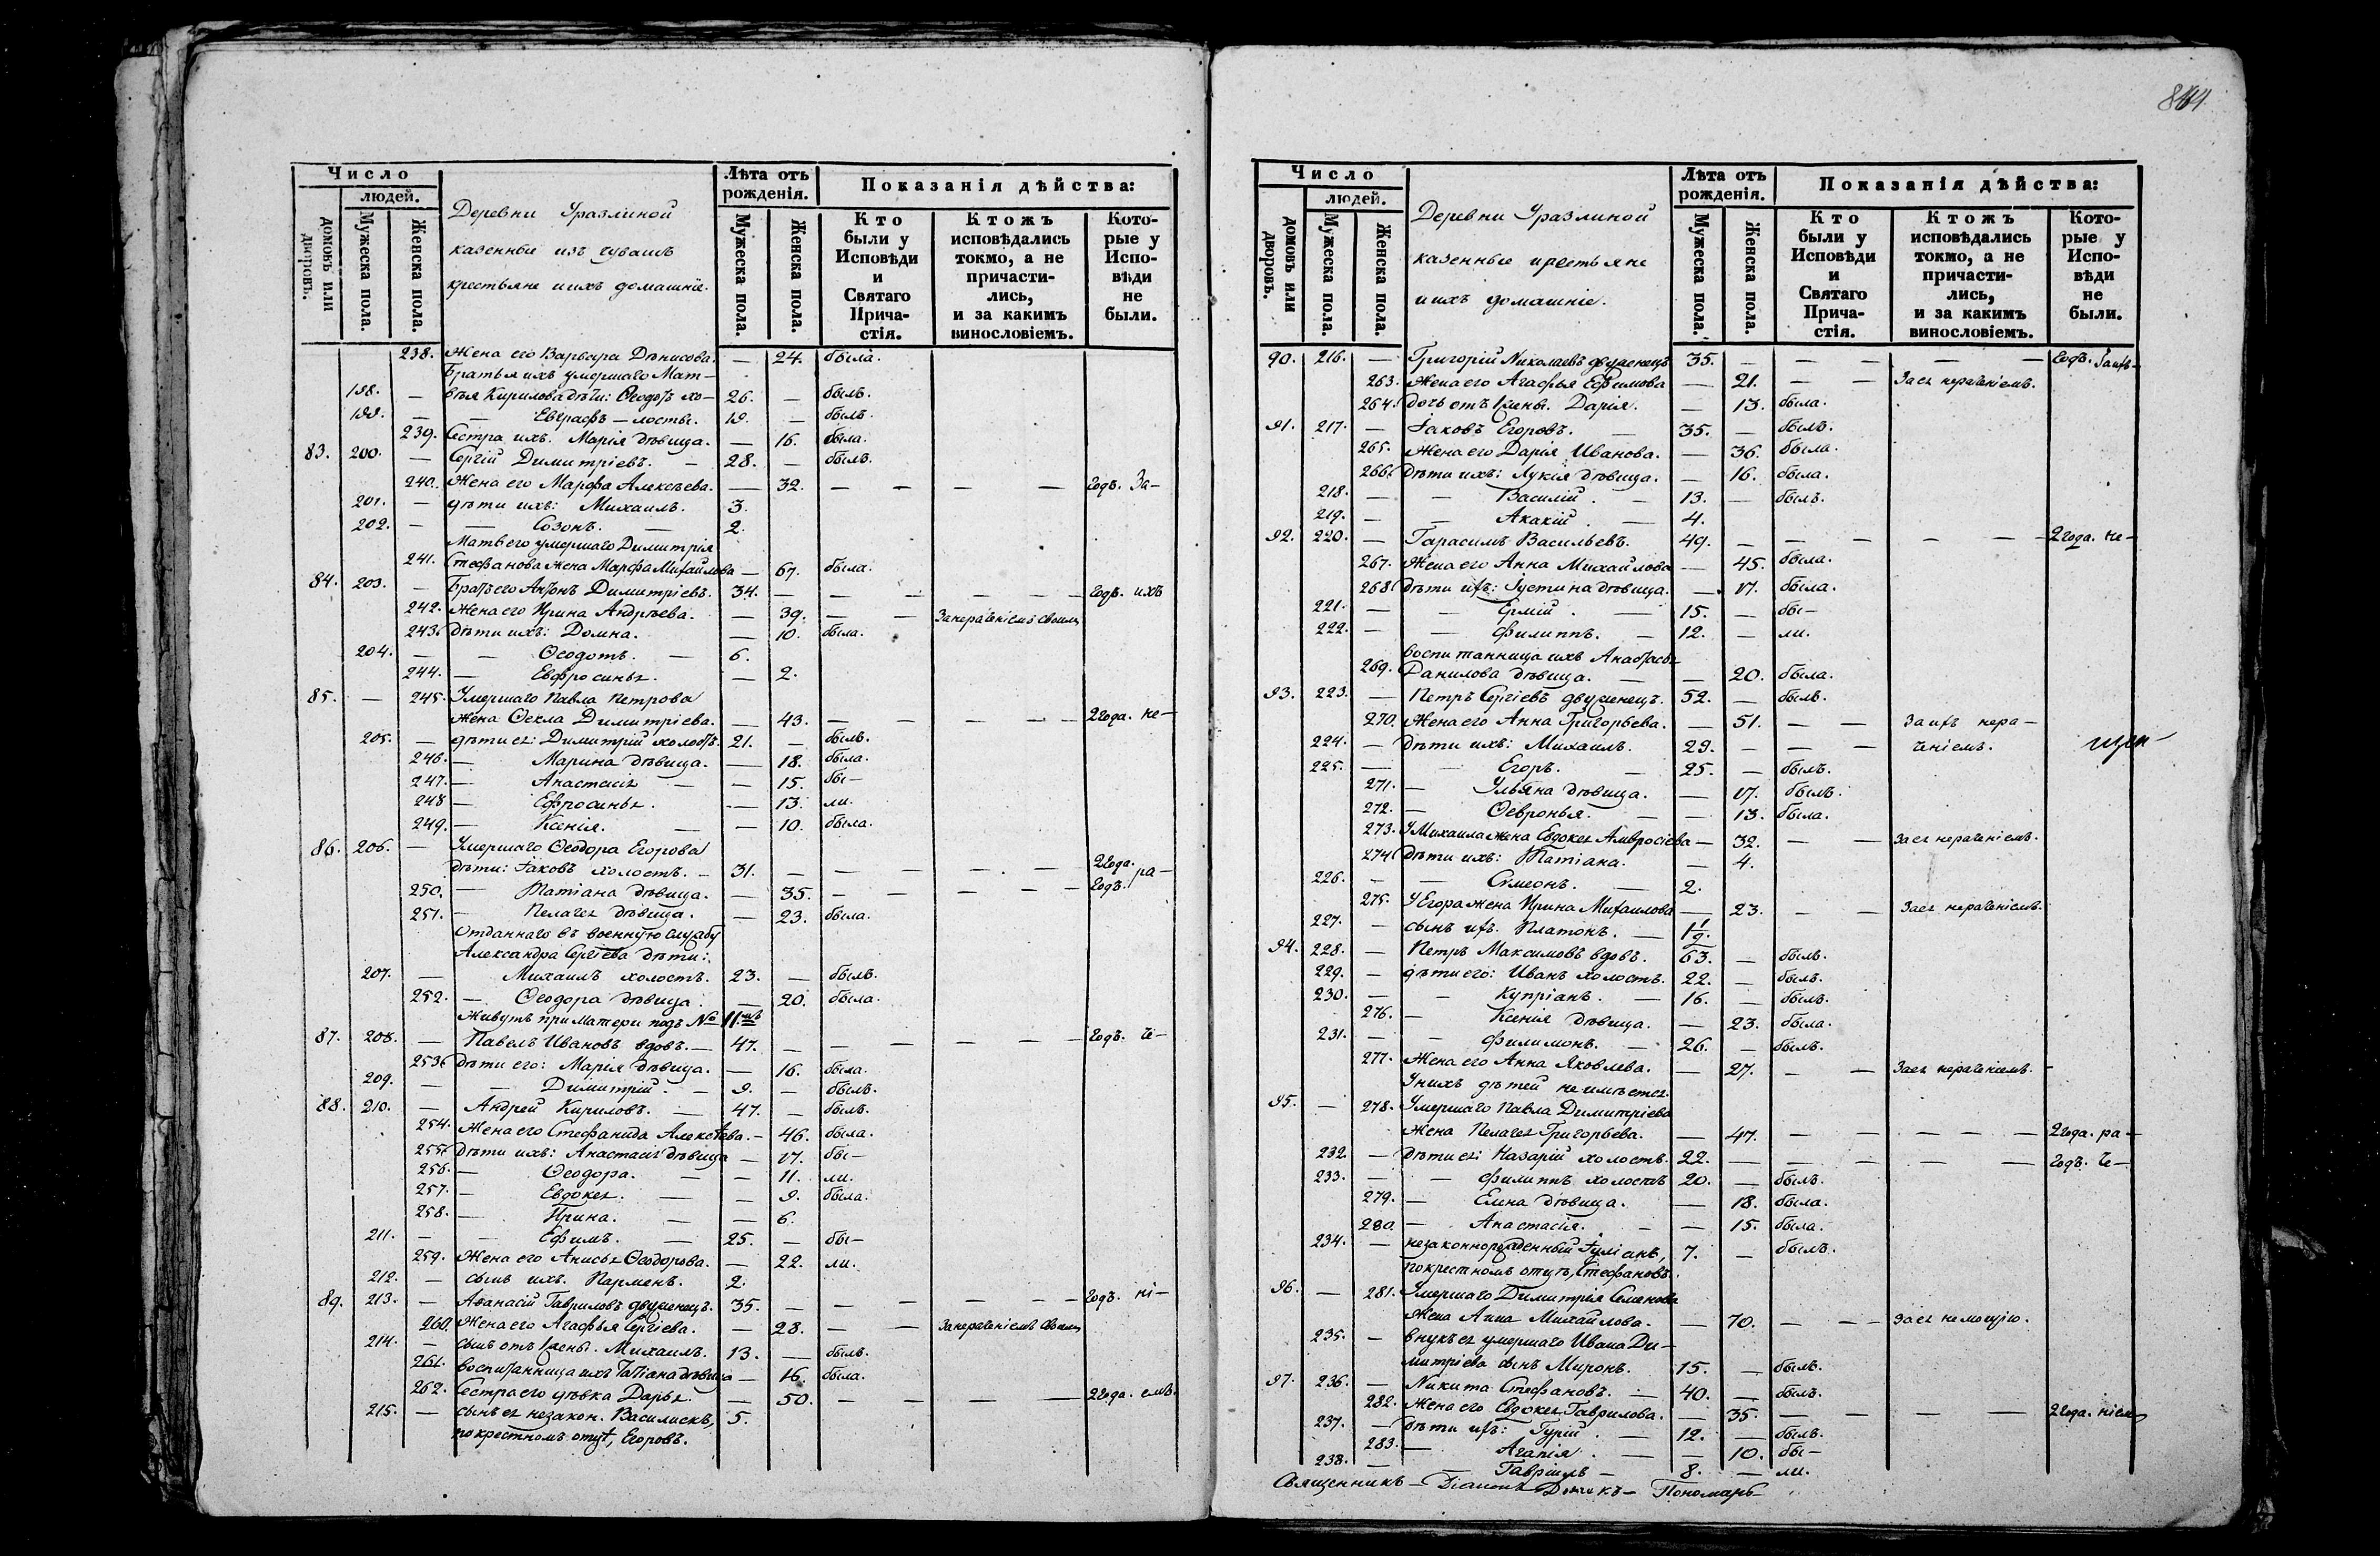 844
Число
людей.
домовъ или дворовъ.
Мужеска пола.
Женска пола.
Деревни Уразлиной
казенные изъ чувашъ
крестьяне и ихъ домашніе.
Лѣта отъ рожденія.
Мужеска пола.
Женска пола.
Показанія дѣйства:
Кто были у Исповѣди и Святаго Прича-стія.
Ктожъ исповѣдались токмо, а не причасти-лись, и за какимъ винословіемъ.
Кото-рые у Испо-вѣди не были.
238. Жена его Варвара Денисова. — 24. была.
Братья ихъ умершаго Мат-
198. — вѣя Кирилова дѣти: Ѳеодотъ хо- 26. — былъ.
199. — — Евграфъ — лосты. 19. — былъ.
239. Сестра ихъ. Марія дѣвица. — 16. была.
83. 200. — Сергій Димитріевъ. — 28. — былъ.
240. Жена его Марфа Алексѣева. — 32. — — — — годъ. За-
201. — дѣти ихъ: Михаилъ. 3.
202. — — Созонъ. — 2.
Мать его умершаго Димитрія
241. Стефанова жена Марфа Михайлова — 67. была.
84. 203. — Братъ его Антонъ Димитріевъ. 34. — — — — — годъ. ихъ
242. Жена его Ирина Андрѣева. — 39. — — За нераченіемъ своимъ
243. дѣти ихъ: Домна. — 10. была.
204. — — Ѳеодотъ. — 6.
244. — Евфросинья. — 2.
85. — 245. Умершаго Павла Петрова
жена Ѳекла Димитріева. — 43. — — — — — 2 года. не-
205. — дѣти ея: Димитрій холостъ. 21. — былъ.
246. — Марина дѣвица. — 18. была.
247. — Анастасія — — 15. бы-
248 — Ефросинья. — 13. ли.
249. — Ксенія. — — 10. была.
86. 206. — Умершаго Ѳеодора Егорова
дѣти: Іаковъ холостъ. — 31. — — — — — 2 года. ра-
250. — Татіана дѣвица. — 35. — — — — — годъ.
251. — Пелагея дѣвица. — 23. была.
Отданнаго въ военную службу
Александра Сергѣева дѣти:
207. — Михаилъ холостъ. 23. — былъ.
252. — Ѳеодора дѣвица. — 20. была.
Живутъ при матери подъ № 11.мъ
87. 208. — Павелъ Ивановъ вдовъ. — 47. — — — — — годъ. че-
253. дѣти его: Марія дѣвица. — 16. была.
209. — — Димитрій. — 9. — былъ.
88. 210. — Андрей Кириловъ. — 47. — былъ.
254. Жена его Стефанида Алексѣева. — 46. была.
255. Дѣти ихъ: Анастасія дѣвица — 17. бы-
256. — Ѳеодора. — — 11. ли.
257. — Евдокея. — — 9. была.
258. — Ирина. — — 6.
211. — — Ефимъ. — 25. — бы-
259. Жена его Анисья Ѳеодорова. — 22. ли.
212. — сынъ ихъ. Парменъ. 2.
89. 213. — Аѳанасій Гавриловъ двуженецъ. 35. — — — — — годъ. ні-
260. Жена его Агафья Сергіева. — 28. — — За нераченіемъ своимъ
214. — сынъ отъ 1 жены. Михаилъ. 13. — былъ.
261. воспитанница ихъ Татіана дѣвица — 16. была.
262. Сестра его дѣвка Дарья. — 50. — — — — 2 года. емъ.
215. — сынъ ея незакон. Василискъ, 5.
по крестномъ отцѣ, Егоровъ.
Число
людей.
домовъ или дворовъ.
Мужеска пола.
Женска пола.
Деревни Уразлиной
казенные крестьяне
и ихъ домашніе.
Лѣта отъ рожденія.
Мужеска пола.
Женска пола.
Показанія дѣйства:
Кто были у Исповѣди и Святаго Прича-стія.
Ктожъ исповѣдались токмо, а не причасти-лись, и за какимъ винословіемъ.
Кото-рые у Испо-вѣди не были.
90. 216. — Григорій Николаевъ двуженецъ 35. — — — — — годъ. За ихъ-
263. Жена его Агафья Ефимова — 21. — — За ея нераченіемъ.
264. дочь отъ 1 жены. Дарія. — 13. была.
91. 217. — Іаковъ Егоровъ. — 35. — былъ.
265. Жена его Дарія Иванова. — 36. была.
266. дѣти ихъ: Лукія дѣвица. — 16. была.
218. — — Василій. — 13. — былъ.
219. — — Акакій. — 4.
92. 220. — Гарасимъ Васильевъ. 49. — — — — — 2 года. не-
267. Жена его Анна Михайлова — 45. была.
268. дѣти ихъ: Іустина дѣвица. — 17. была.
221. — — Ермій. — 15. — бы-
222. — — Филиппъ. — 12. — ли.
воспитанница ихъ Анастасья
269. Данилова дѣвица. — — 20. была.
93. 223. — Петръ Сергіевъ двуженецъ. 52. — былъ.
270. Жена его Анна Григорьева. — 51. — — За ихъ нера-
224. — Дѣти ихъ: Михаилъ. 29. — — — ченіемъ.
225. — — Егоръ. — 25. — былъ.
271. — Ульяна дѣвица. — 17. былъ.
272. — Ѳевронья. — — 13. была.
273. У Михаила жена Евдокея Амвросіева — 32. — — За ея нераченіемъ.
274. дѣти ихъ: Татіана. — 4.
226. — — Симеонъ. — 2.
275. У Егора жена Ирина Михаилова — 23. — — За ея нераченіемъ.
227. — сынъ ихъ. Платонъ. —
94. 228. — Петръ Максимовъ вдовъ. 63. — былъ.
229. — дѣти его: Иванъ холостъ. 22. — былъ.
230. — — Купріанъ. — 16. — былъ.
276. — Ксенія дѣвица. — 23. была.
231. — — Филимонъ. — 26. — былъ.
277. Жена его Анна Яковлева. — 27. — — За ея нераченіемъ.
У нихъ дѣтей не имѣется.
95. — 278. Умершаго Павла Димитріева
жена Пелагея Григорьева. — 47. — — — — — 2 года. ра-
232. — Дѣти ея: Назарій холостъ. 22. — — — — — годъ. че-
233. — — Филиппъ холостъ 20. — былъ.
279. — Елена дѣвица. — 18. была.
280. — Анастасія. — — 15. была.
234. — незаконнорожденный Іуліанъ, 7. — былъ.
по крестномъ отцѣ, Стефановъ.
96. — 281. Умершаго Димитрія Семенова
жена Анна Михайлова. — 70. — — — За ея немощію.
235. — внукъ ея умершаго Ивана Ди-
митріева сынъ Миронъ. 15. — былъ.
97. 236. — Никита Стефановъ. — 40. — былъ.
282. Жена его Евдокея Гаврилова. — 35. — — — — 2 года. ніемъ
237. — дѣти ихъ: Гурій. — 12. — былъ.
283. — Агапія. — — 10. бы-
238. — — Гавріилъ — 8. — ли.
Священникъ — Діаконъ Дьячкъ — Пономарь